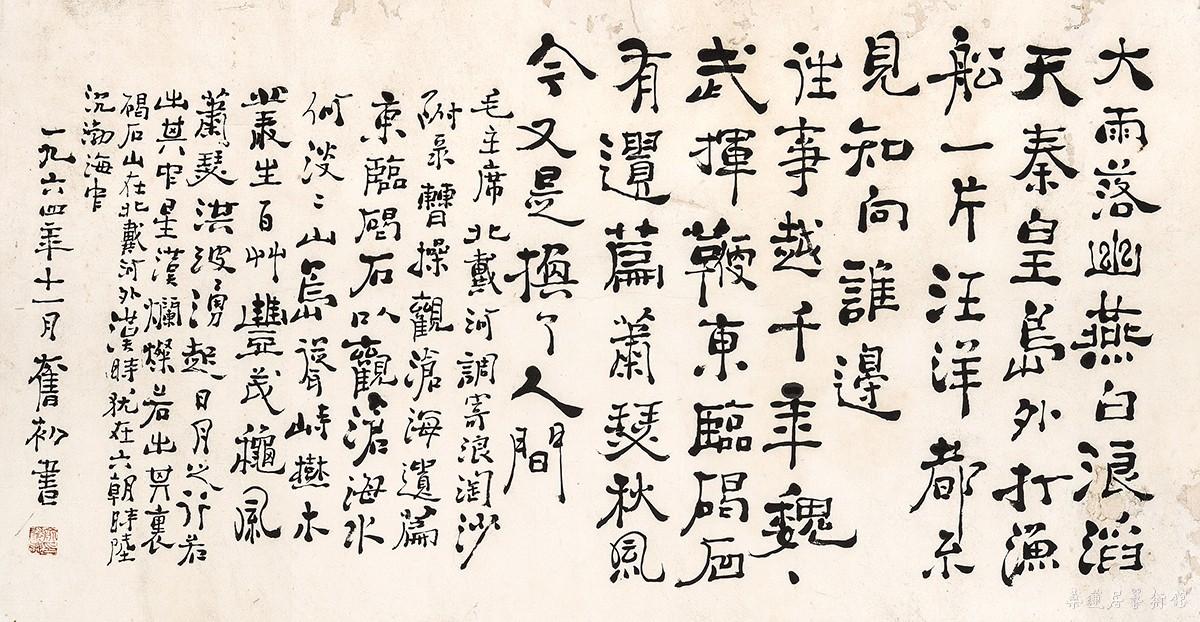 大雨落幽燕白浪滔
天秦皇島外打漁
船一片汪洋都不
見知向誰邊
往事越千年魏、
武揮鞭東臨碣石
有遺篇蕭瑟秋風
今又是換了人間
毛主席北戴河調寄浪淘沙
附录曹操觀滄海遺篇
東臨碣石以觀滄海水
何淡〻山島聳峙樹木
叢生百艸豐茂穐風
蕭瑟洪波湧起日月之行若
出其中星漢爛燦若出其裏
碣石山在北戴河外漢時犹在六朝時陸
沉渤海中
一九六四年十一月奮初書